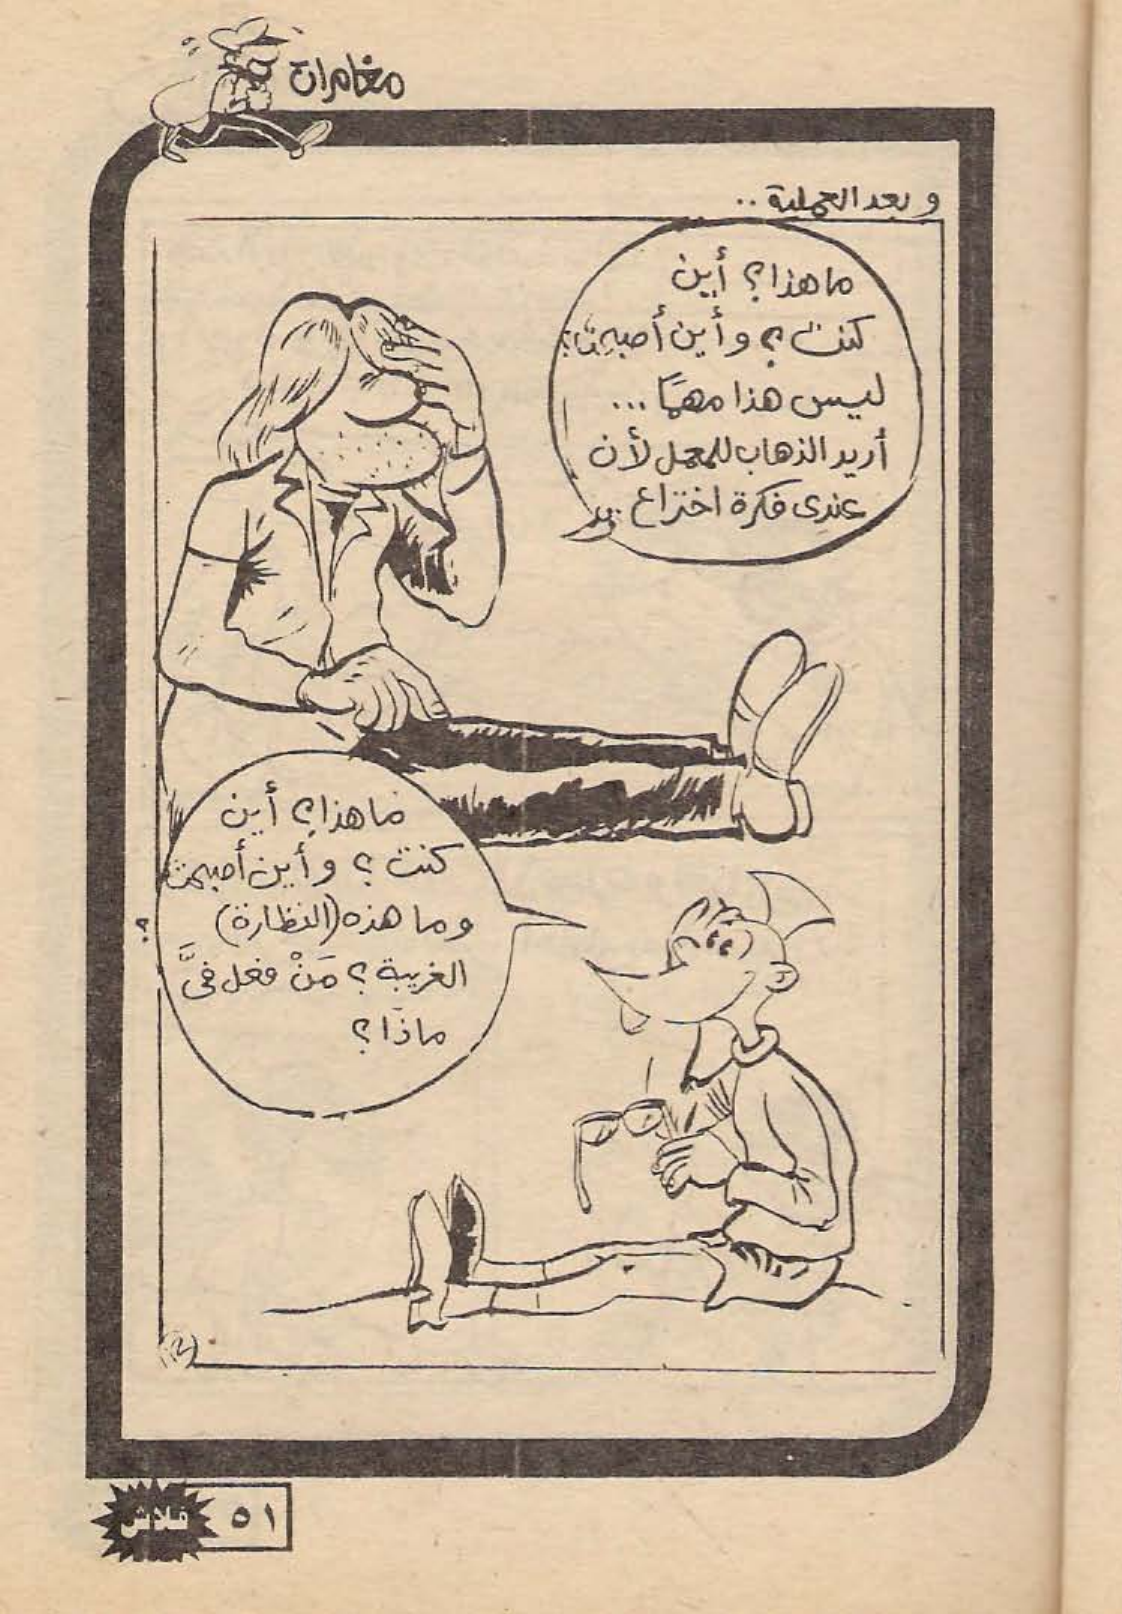 مغامرات
و بعد العملية ..
ما هذا؟ أين
كنت؟ و أين أصبحت؟
ليس هذا مهمًا ...
أريد الذهاب للمعمل لأن
عندى فكرة اختراع
ما هذا؟ أين
كنت؟ و أين أصبحت
وما هذه (النظارة)
الغريبة؟ مَنْ فعل فىَّ
ماذا؟
؟
فلاش ٥١